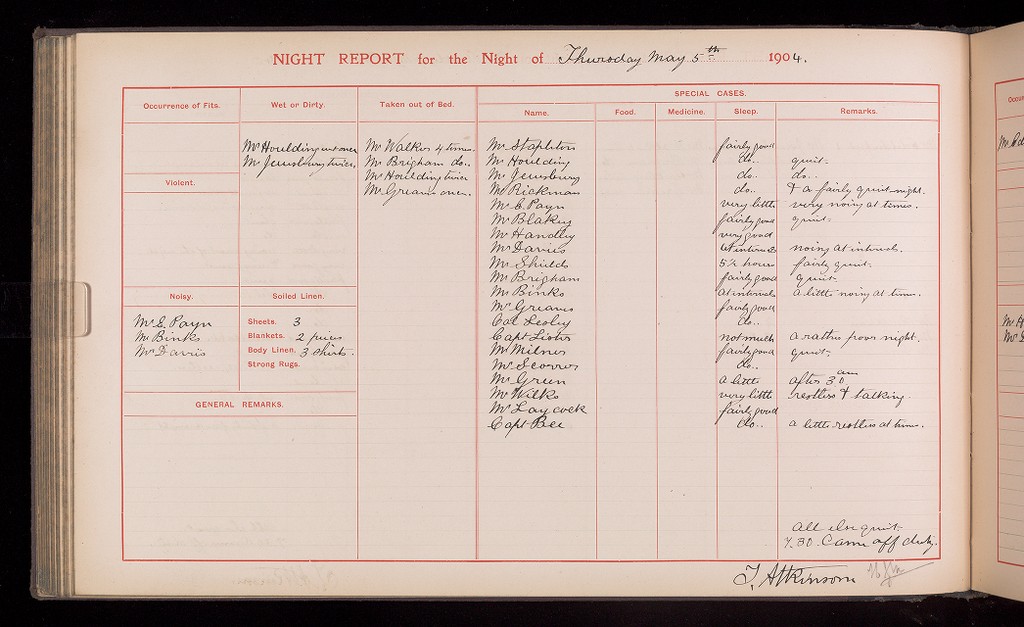 NIGHT REPORT for the Night of Thursday May 5th 1904.
SPECIAL CASES.
Occurrence of Fits. Wet or Dirty. Taken out of Bed. Name. Food. Medicine. Sleep. Remarks.
Mr Houlding wet once Mr Walker 4 times. Mr Stapleton fairly good
Mr Jewsbury twice. Mr Brigham do.. Mr Houlding do.. quiet.
Mr Houlding twice Mr Jewsbury do.. do..
Violent. Mr Greaves once. Mr Rickman do.. & a fairly quiet night.
Mr C. Payn very little very noisy at times.
Mr Blakey fairly good quiet.
Mr Handley very good
Mr Davies at intervals noisy at intervals.
Mr Shields 5½ hours fairly quiet.
Mr Brigham fairly good quiet.
Noisy. Soiled Linen. Mr Binks at intervals a little noisy at times.
Mr Greaves fairly good
Mr E. Payn Sheets. 3 Col Lesley do..
Mr Binks Blankets. 2 pieces Capt Lister not much a rather poor night.
Mr Davies Body Linen. 3 shirts. Mr Milner fairly good quiet.
Strong Rugs. Mr Scorrer do..
Mr Green a little after 3.0 am
Mr Wilks very little restless & talking.
GENERAL REMARKS. Mr Laycock fairly good
Capt Bee do.. a little restless at times.
All else quiet.
7.30 Came off duty.
T. Atkinson